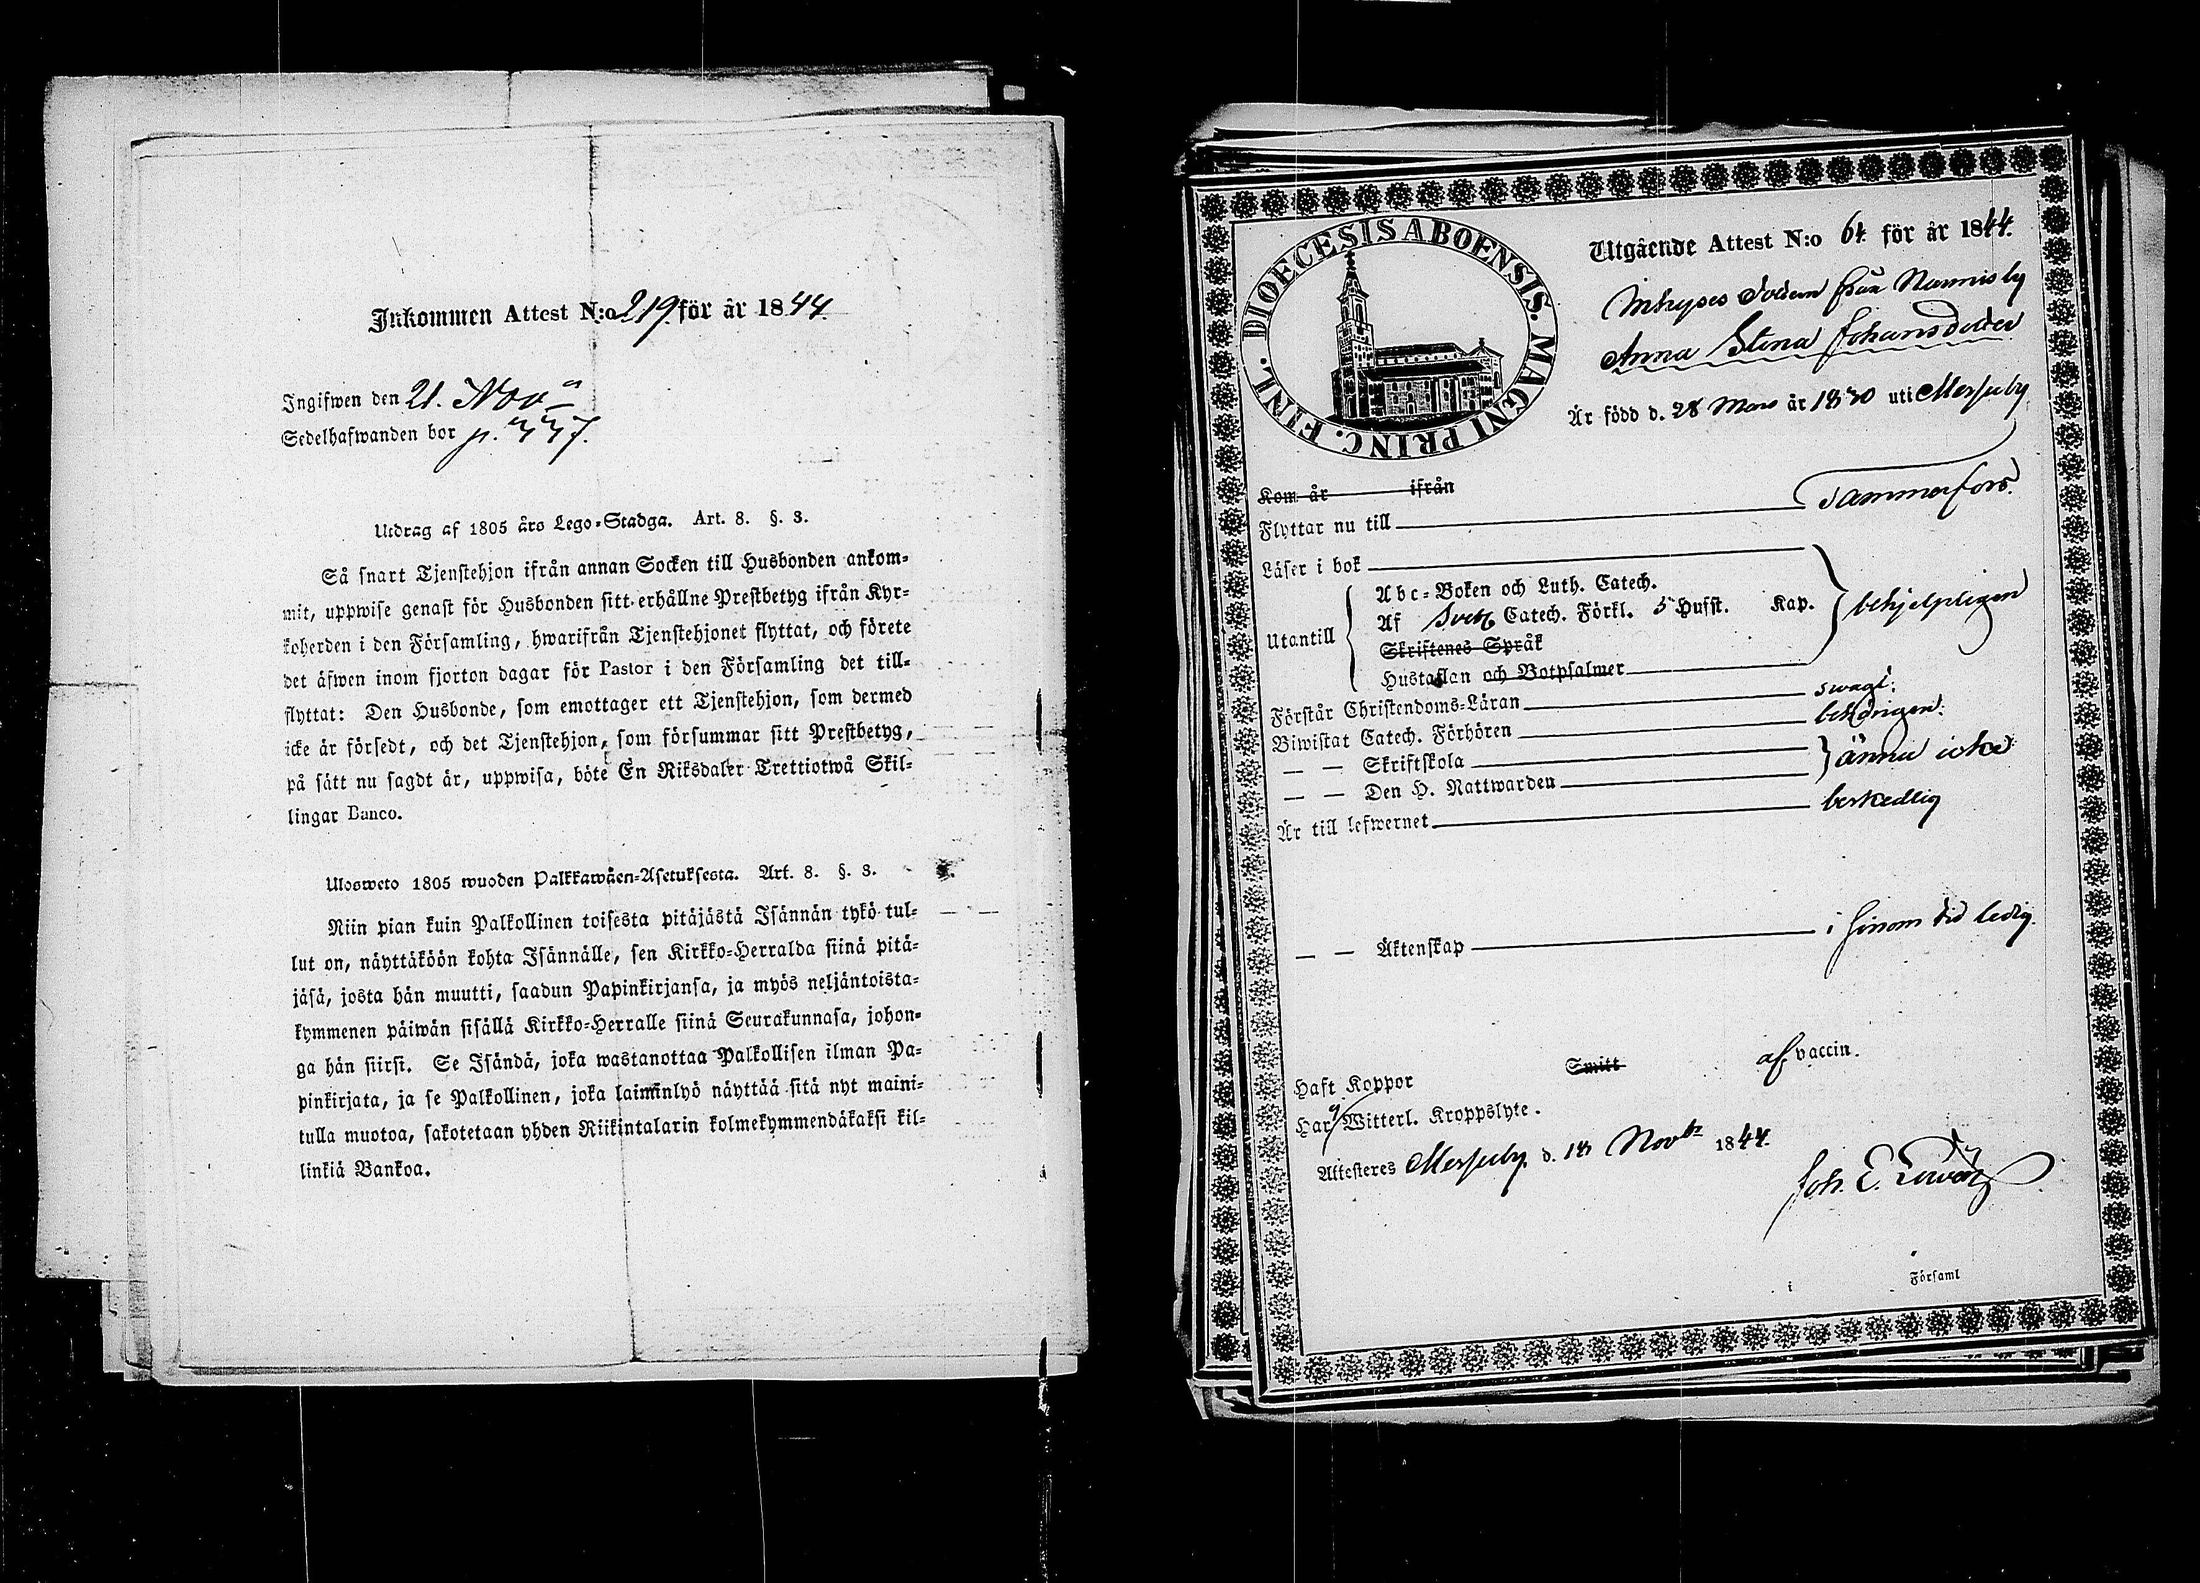 Inkommen Attest N:o 219 för år 1844
Ingifwen den 21. Nov
Sedelhafwanden bor p. 337.
Utdrag af 1805 års Lego-Stadga. Art. 8. §. 3.
Så snart Tjenstehjon ifrån annan Socken till Husbonden ankom-
mit, uppwise genast för Husbonden sitt erhållne Prestbetyg ifrån Kyr-
koherden i den Församling, hwarifrån Tjenstehjonet flyttat, och förete
det äfwen inom fjorton dagar för Pastor i den Församling det till-
flyttat: Den Husbonde, som emottager ett Tjenstehjon, som dermed
icke är försedt, och det Tjenstehjon, som försummar sitt Prestbetyg,
på sätt nu sagdt är, uppwisa, böte En Riksdaler Trettiotwå Skil-
lingar Banco.
Ulosweto 1805 wuoden Palkkawäen-Asetuksesta. Art. 8. §. 3.
Niin pian kuin Palkollinen toisesta pitäjästä Isännän tykö tul-
lut on, näyttäköön kohta Isännälle, sen Kirkko-Herralda siinä pitä-
jäsä, josta hän muutti, saadun Papinkirjansa, ja myös neljäntoista-
kymmenen päiwän sisällä Kirkko-Herralle siinä Seurakunnasa, johon-
ga hän siirsi. Se Isändä, joka wastanottaa Palkollisen ilman Pa-
pinkirjata, ja se Palkollinen, joka laiminlyö näyttää sitä nyt maini-
tulla muotoa, sakotetaan yhden Riikintalarin kolmekymmendäkaksi kil-
linkiä Bankoa.
DIOECESIS ABOENSIS. MAGNI PRINC. FINL.
Utgående Attest N:o 64 för år 1844.
Inhyses Dottern från Nannisby
Anna Stina Johansdotter
Är född d. 28 Mars år 1830 uti Messuby
Kom år ifrån
Flyttar nu till Tammerfors.
Läser i bok
Utantill
Abc-Boken och Luth. Catech.
Af Sveb. Catech. Förkl. 5 Hufst. Kap. behjelpligen
Skriftenes Språk
Hustaflan och Botpsalmer
Förstår Christendoms-Läran swagt.
Biwistat Catech. Förhören behörigen.
— — Skriftskola ännu icke
— — Den H. Nattwarden
Är till lefwernet beskedlig
— — Äktenskap i sinom tid ledig.
Haft Koppor Smitt af vaccin.
Har ej Witterl. Kroppslyte.
Attesteres Messuby d. 18 Novbr 1844.
Joh. E.
i Församl